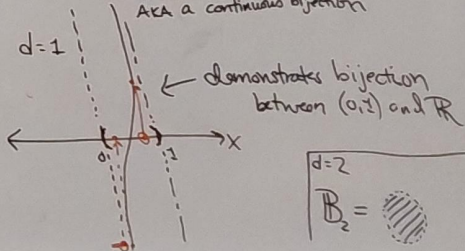 AKA a continuous bijection
d=1
← demonstrates bijection
between (0,1) and ℝ
0 1 X
d=2
𝔹₂ =